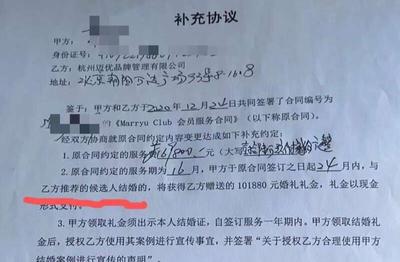 补充协议
甲方：
身份证号：
乙方：杭州迈优品牌管理有限公司
地址：北京朝阳
签于：甲方和乙方于2020年12月24日共同签署了合同编号为
《Marryu Club 会员服务合同》（以下称原合同）。
经双方协商就原合同约定内容变更达成如下补充约定：
1.原合同约定的服务 元（大写
2.原合同约定的服务期为16月，甲方于原合同签订之日起24月内，与
乙方推荐的候选人结婚的，将获得乙方赠送的101880元婚礼礼金，礼金以现金
形式支付。
3.甲方领取礼金须出示本人结婚证，自签订服务一年期内。甲方领取结婚
金后，授权乙方使用其案例进行宣传事宜，并签署“关于授权乙方合理使用甲方
结婚案例进行宣传的声明”。